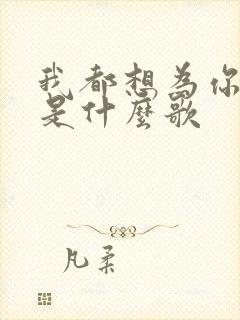 我都想為你
是什麼歌
凡柔